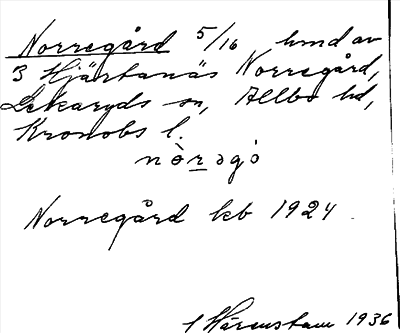 Norregård 5/16 hmd av
3 Hjärtanäs Norregård,
Lekaryds sn, Allbo hd,
Kronobs l.
nòrəgó
Norregård kb 1924.
Härenstam 1936